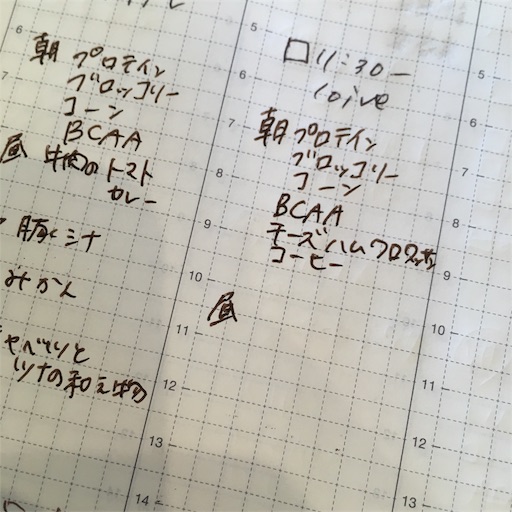 朝 プロテイン
ブロッコリー
コーン
BCAA
昼 牛肉のトマト
カレー
みかん
キャベツと
ツナの和え物
6
7
5
6
7
8
9
10
11
12
13
14
□ 11:30ー
朝 プロテイン
ブロッコリー
コーン
BCAA
チーズハムクロワッサン
コーヒー
昼
5
6
7
8
9
10
11
12
13